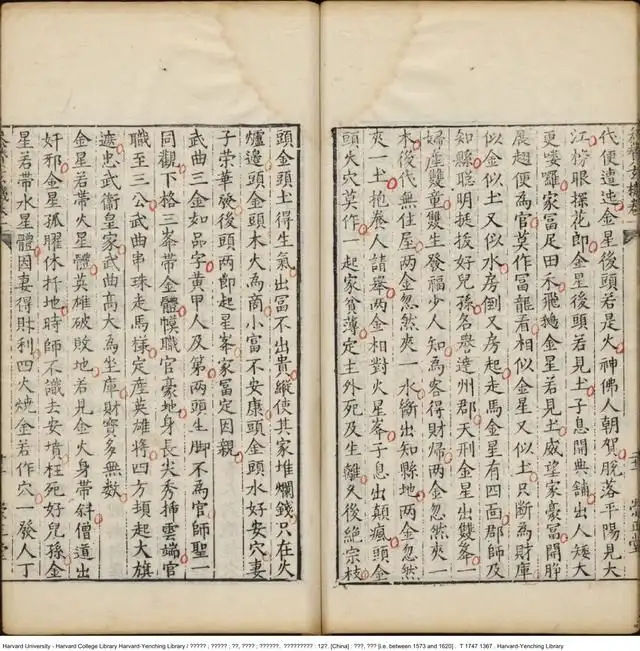 代便遭迍金星後頭若是火神佛人朝賀脫落平陽見大
江榜眼探花郎金星後頭若見土子息開典舖出人矮大
更嘍囉家冨足田禾飛鵝金星若見土威望家豪冨開睜
展翅便為官莫作冨龍看相似金星又似土只斷為財庫
似金似土又似水房倒又房起走馬金星有四面郡師及
知縣聰明挺拔好兒孫名譽達州郡天刑金星出雙峯一
婦產雙童雙生發福少人知為客得財歸兩金忽然夾一
木後代無住屋兩金忽然夾一水衙出知縣地兩金忽然
夾一土抱養人請舉兩金相對火星峯子息出顛瘋頭金
頭火穴莫作一起家貧薄定主外死及生離久後絶宗枝
頭金頭土得生氣出冨不出貴縱使其家堆爛錢只在火
爐邉頭金頭木火為商小冨不安康頭金頭水好安穴妻
子榮華發後頭兩節起星峯家冨定因親
武曲三金如品字黄甲人及第兩頭生脚不為官師聖一
同觀下格三峯帶金體幞職官豪地身長尖秀揷雲端官
職至三公武曲串珠走馬樣定產英雄將四方頓起大旗
遮忠武衞皇家武曲高大為坐庫財寳多無數
金星若帶火星體英雄破敗地若見金火身帶斜僧道出
奸邪金星孤曜休杆地時師不識去安墳枉死好兒孫金
星若帶水星體因妻得財利四火燒金若作穴一發人丁
Harvard University - Harvard College Library Harvard-Yenching Library / ????? ; ????? ; ??, ???? ; ??????. ????????? : 12?. [China] : ???, ??? [i.e. between 1573 and 1620] . T 1747 1367 . Harvard-Yenching Library